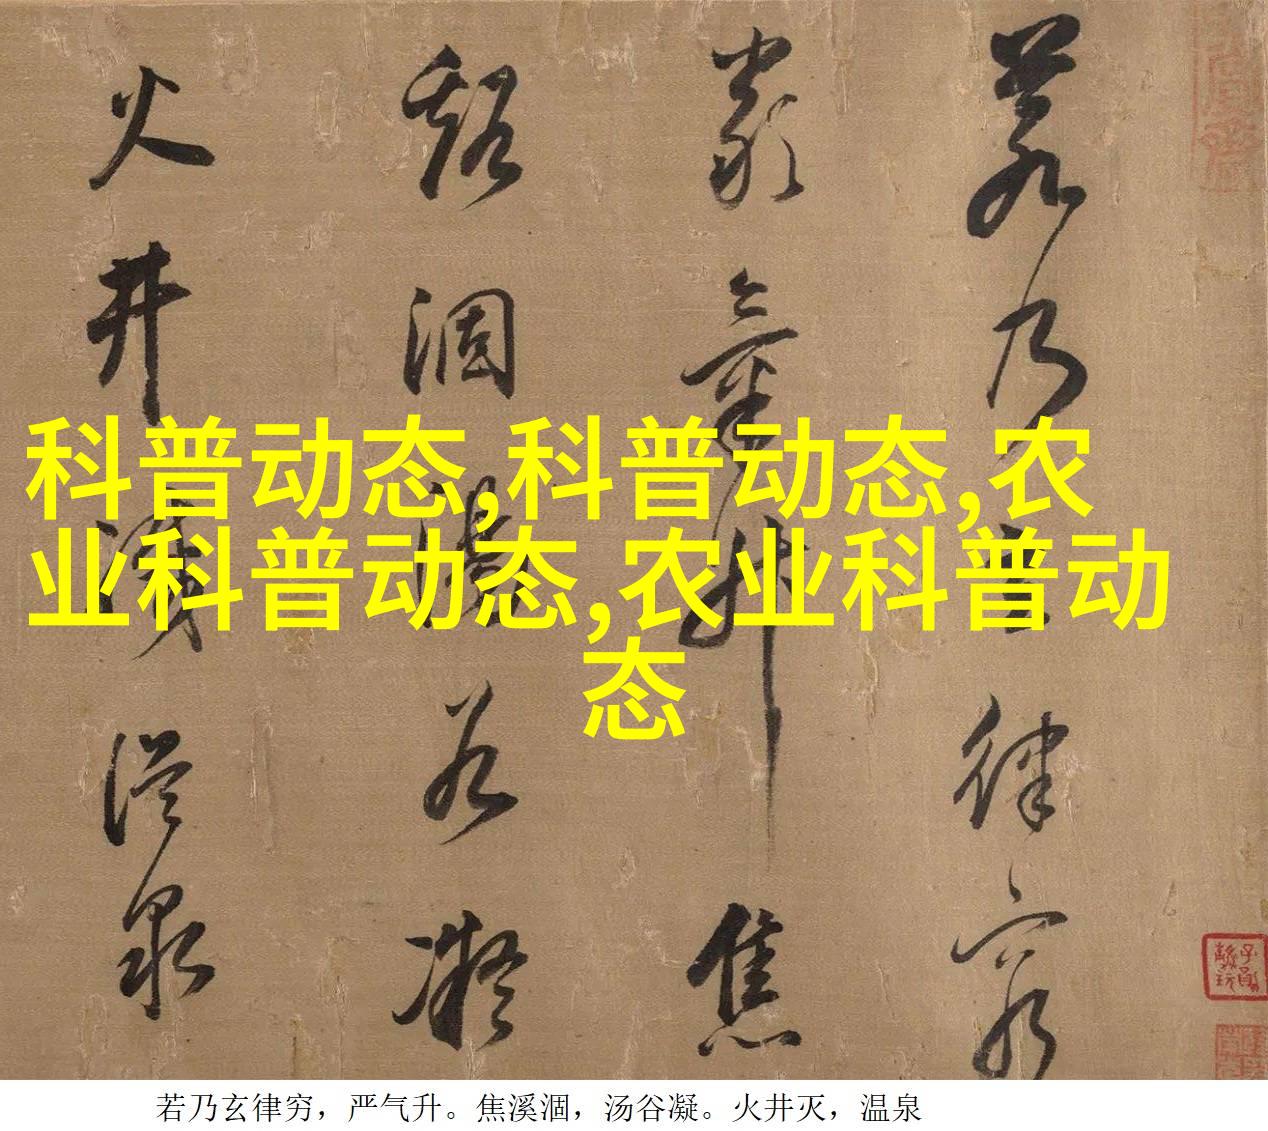 科普动态,科普动态,农
业科普动态,农业科普动
态
若乃玄律穷
严气升焦
溪涸汤谷凝
火井灭温泉
若乃玄律穷，严气升。焦溪涸，汤谷凝。火井灭，温泉